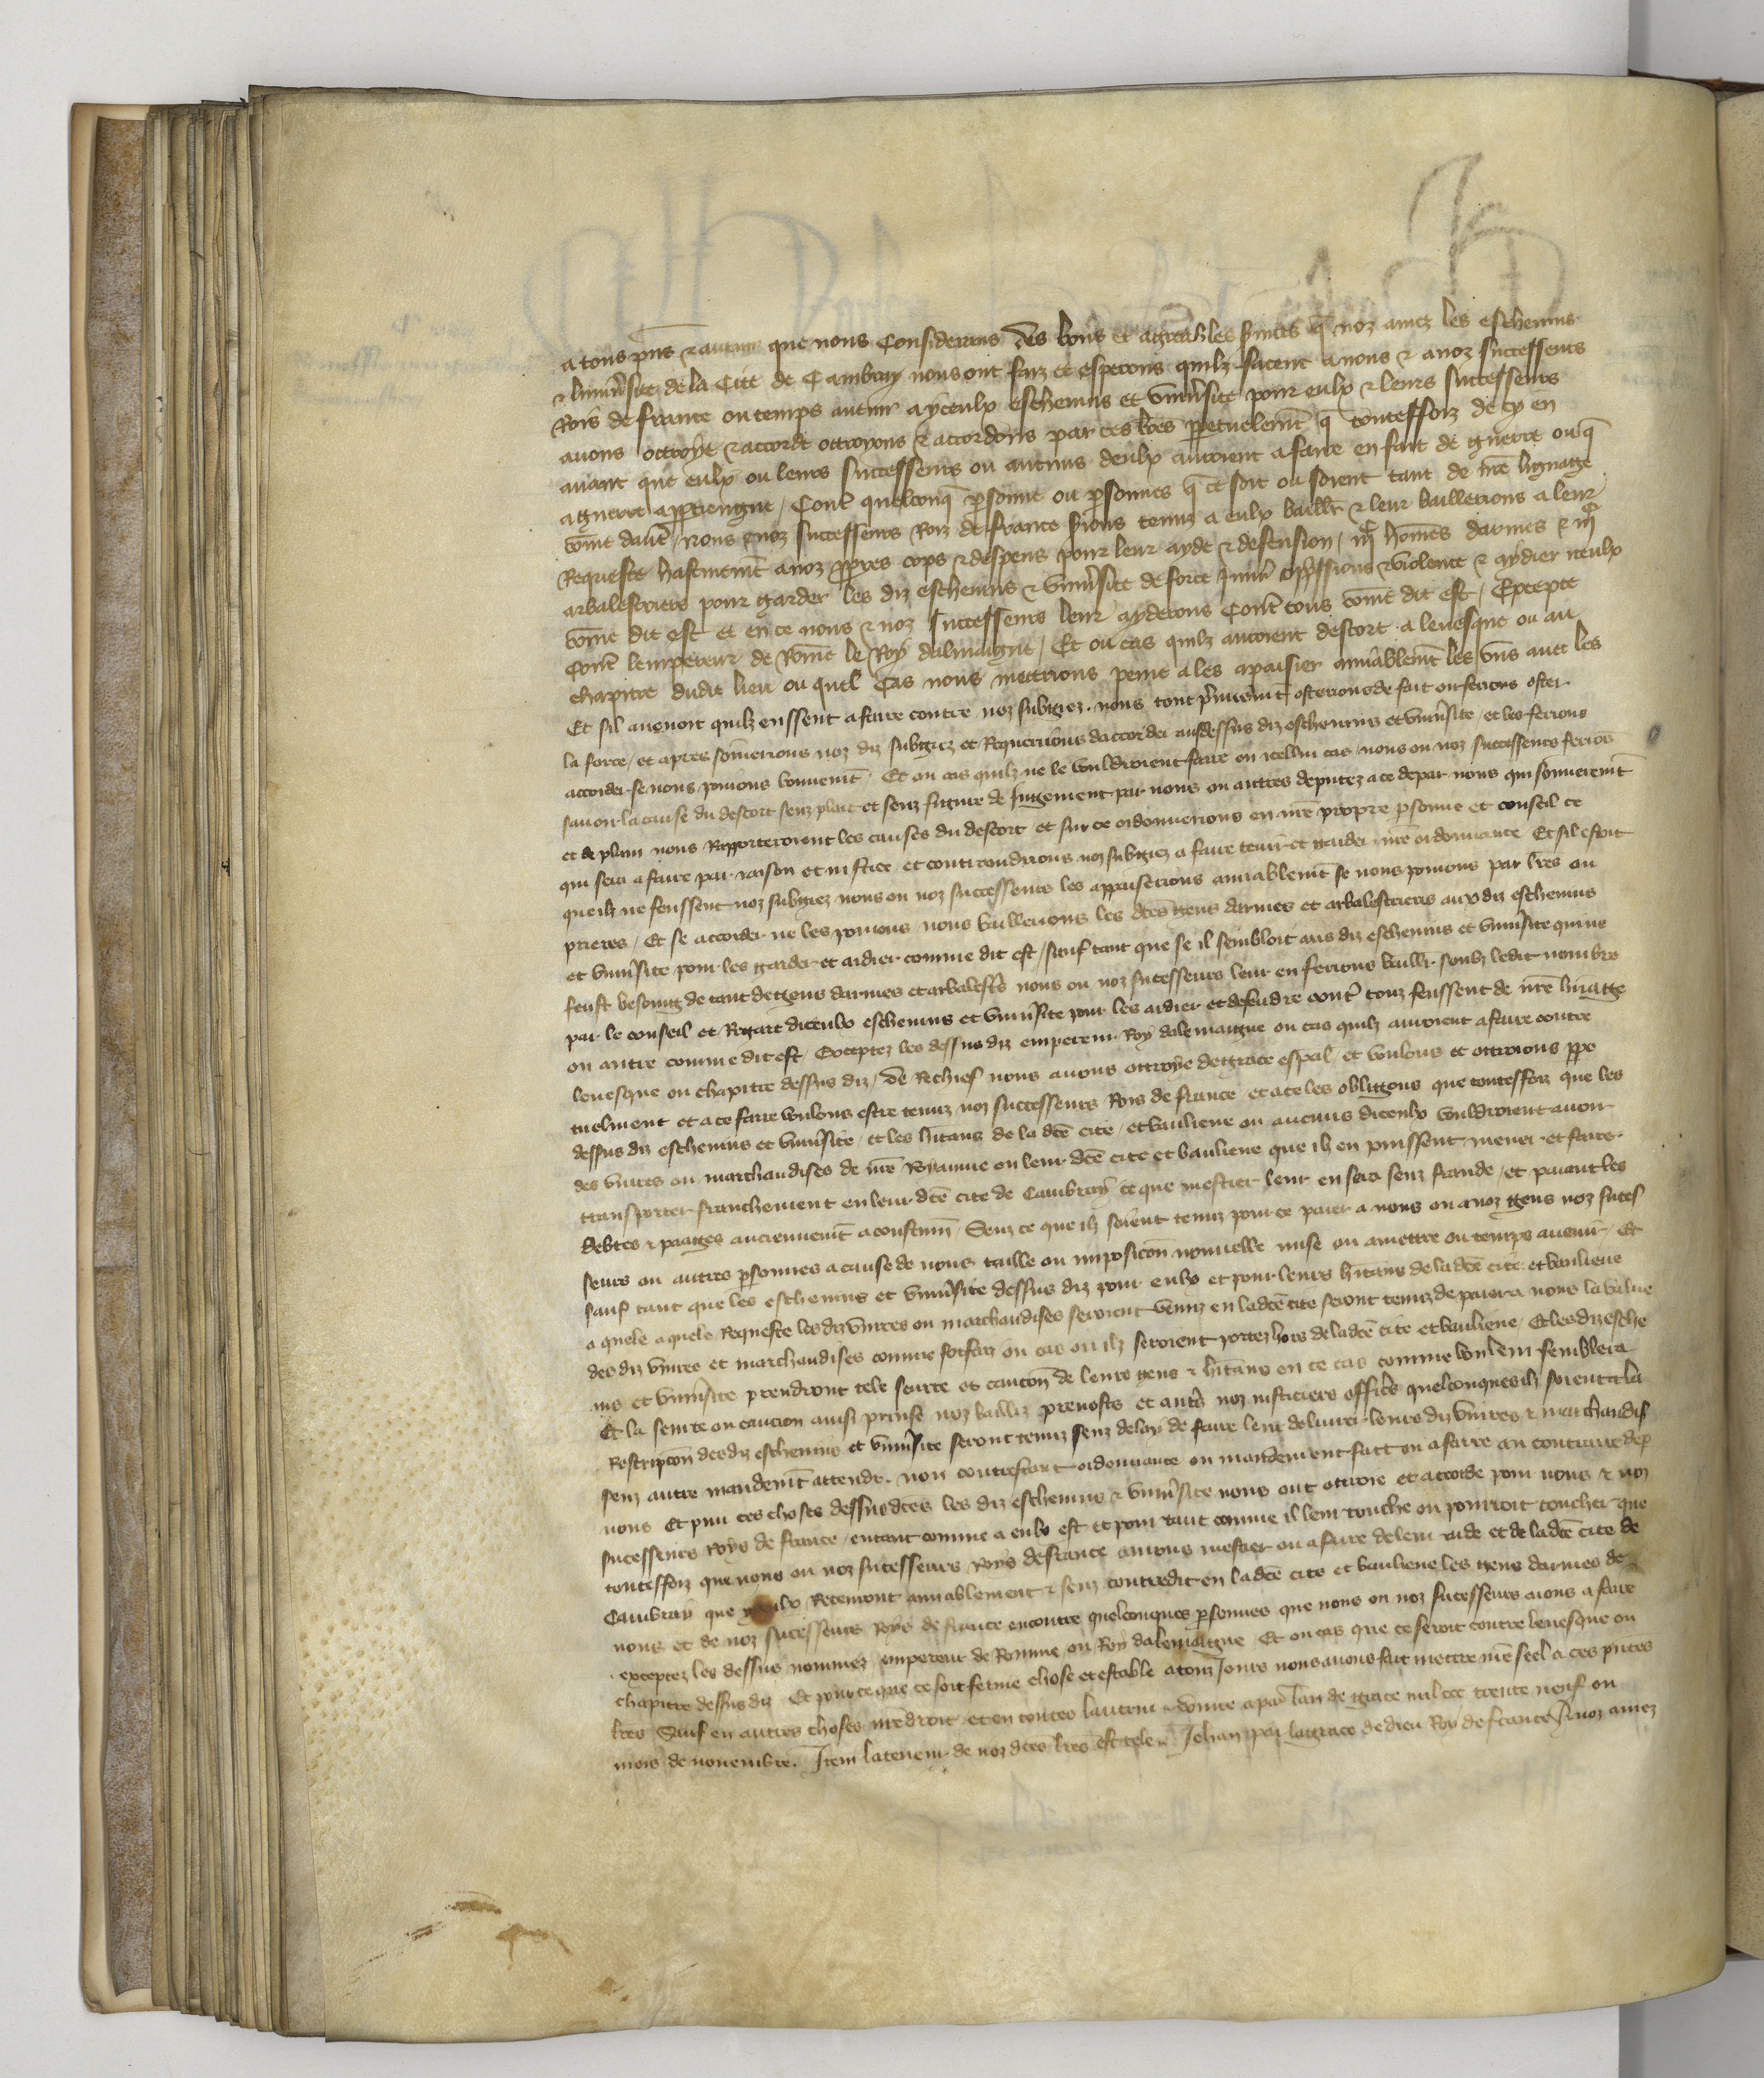 a tous pñs & auenir que nous Considerans des bons et agreables s̃uices q̃ noz amez les escheuins
& luniũsite de la Cite de Cambray nous ont faiz et esperons quilz facent a nous & a noz successeurs
Rois de france ou temps auenir a yceulx escheuins et vniũsite pour eulx & leurs successeurs
auons octroye & accorde octroyons & accordons par ces lr̃es ppetuelemẽt q̃ toutesfoiz de cy en
auant que eulx ou leurs successeurs ou aucuns deulx auroient a faire en fait de guerre ou q̃
a guerre apptiengne / Cont̃ quelconq̃ psonne ou psonnes q̃ ce soit ou soient tant de nr̃e lignage
com̃e dautr̃ / Nous & noz successeurs Roiz de france s̃ions tenuz a eulx baillr̃ & leur baillerions a leur
Requeste hastiuemẽt a noz ppres cops & despens pour leur ayde & defension / iijc hom̃es darmes & iijc
arbalestriers pour garder les diz escheuins & vniũsite de force Iniur̃ oppssions & violence & aydier iceulx
com̃e dit est et en ce nous & noz successeurs leur ayderons Cont̃ tous com̃e dit est / Excepte
Cont̃ lempereur de Rom̃e le Roy dalmaigne / Et ou cas quilz auroient descort a leuesque ou au
chapitre dudit lieu ou quel Cas nous metterions peine a les apaisier amiãblemẽt les vns auec les
Et sil auenoit quilz eussent a faire contre noz subgiez . nous tout p̃mieremẽt osterions de fait ou ferions oster
la force / et apres som̃erions noz diz subgiez et Requerrions daccorder ausdessus diz escheuins et vniũsite / et les ferions
accorder se nous pouions bonnemẽt . Et ou cas quilz ne le vouldroient faire ou icellui cas nous ou noz successeurs ferions
sauoir la cause du descort senz plait et senz figure de Iugement par nous ou autres deputez a ce depar nous qui sommeremẽt
et de plain nous Rapporteroient les causes du descort et sur ce ordonnerions en nr̃e propre psonne et conseil ce
qui sera a faire par raison et iustice et contraindrions noz subgiez a faire tenir et garder nr̃e ordonnance Et sil estoit
que ilz ne feussent noz subgiez nous ou noz successeurs les appaiserions amiablemẽt se nous pouions par lr̃es ou
prieres / Et se accorder ne les pouions / nous baillerions les dc̃es gens darmes et arbalestriers aux diz escheuins
et vniũsite pour les garder et aidier comme dit est / sauf tant que se il sembloit aus diz escheuins et vniũsite qui ne
feust besoing de tant de gens darmes et arbalestr̃s nous ou noz sucesseurs leur en ferions baillr̃ soubz ledit nombre
par le conseil et Regart diceulx escheuins et vniũsite pour les aidier et defendre cont̃ touz feussent de nr̃e linage
ou autre comme dit est / Exceptez les dessus diz empereur Roy dalemaigne ou cas quilz auroient a faire contre
leuesque ou chapitre dessus diz / De Rechief nous auons ottroye de grace espãl et voulons et ottroions ppe
tuelment et a ce faire voulons estre tenuz noz successeurs Rois de france et a ce les obligons que toutesfoiz que les
dessus diz escheuins et vniũsite / et les hĩtans de la dc̃e cite / et banliene ou aucuns diceulx vouldroient auoir
des viures ou marchandises de nr̃e Royaume ou leur dc̃e cite et banliene que ilz en puissent mener et faire
transporter franchement en leur dc̃e cite de Cambray ce que mestier leur en sera senz fraude / et paiant les
debtes & paages anciennemẽt acoustum̃ / Senz ce que ilz soient tenuz pour ce paier a nous ou a noz gens noz suces
seurs ou autres psonnes a cause de nous taille ou imposicõn nouuelle mise ou amettre ou temps auenir / Et
sauf tant que les escheuins et vniũsite dessus diz pour eulx et pour leurs hĩtans de la dc̃e cite et banliene
a quele a quele Requeste les diz viures ou marchandises seroient venuz en ladc̃e cite seront tenuz de paier a nous la value
des diz viures et marchandises comme forfaiz ou cas ou ilz seroient portez hors de ladc̃e cite et banliene / Et les diz esche
uis et vniũsite prendront tele seurte et caucõn de leurs gens & hĩtans en ce cas comme bon leur semblera
Et la seurte ou caucion ainsi prinse noz bailliz preuosts et autr̃s noz iusticiers officẽs quelconques ilz soient a la
Rescripcõn des diz escheuins et vniũsite seront tenuz senz delay de faire leur deliurer leurs diz viures & marchandis
senz autre mandemẽt attendr̃ . non contrestant ordonnance ou mandement fait ou a faire au contraire dep
nous Et pmi ces choses dessusdc̃es les diz escheuins & vniũsite nous ont ottroie et accorde pour nous & noz
sucesseurs roys de france / entant comme a eulx est et pour tant comme il leur touche ou pourroit toucher que
toutesfoiz que nous ou noz sucesseurs Roys de france aurons mestier ou a faire de leur aide et de ladc̃e cite de
Cambray que yceulx Receuront amiablement & senz contredit en ladc̃e cite et banliene les gens darmes de
nous et de noz sucesseurs Roys de france encontre quelconques psonnes que nous ou noz sucesseurs aions a faire
exceptez les dessus nommez empereur de Romme ou Roy dalemaigne Et ou cas que ce seroit contre leuesque ou
chapitre dessus diz Et pour ce que ce soit ferme chose et estable a touz Iours nous auons fait mettre nr̃e seel a ces pñtes
lr̃es Sauf en autres choses nr̃e droit et en toutes lautrui Donne a par̃ lan de grace mil ccc trente neuf ou
mois de nouembre . Item la teneur de noz dc̃es lr̃es est tele Iehan par la grace de dieu Roy de france A noz amez